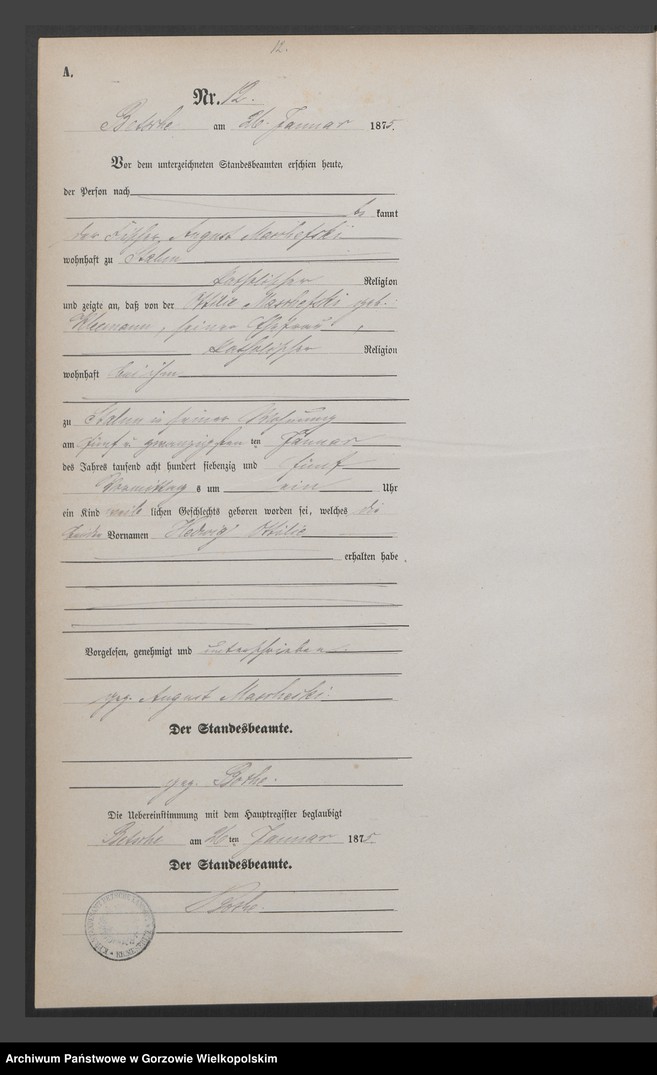 12.
A.
Nr. 12.
Betsche am 26. Januar 1875.
Vor dem unterzeichneten Standesbeamten erschien heute,
der Person nach
be kannt
der August Maschefski
wohnhaft zu Stalun
katholischer Religion
und zeigte an, daß von der Ottilie Maschefski geb.
seiner Ehefrau,
katholischer Religion
wohnhaft bei ihm
zu Stalun in seiner Wohnung
am fünf u zwanzigsten ten Januar
des Jahres tausend acht hundert siebenzig und fünf
Vormittag s um ein Uhr
ein Kind weib lichen Geschlechts geboren worden sei, welches die
Vornamen Hedwig Ottilie
erhalten habe.
Vorgelesen, genehmigt und unterschrieben
gez. August Mascheski
Der Standesbeamte.
gez. Bothe.
Die Uebereinstimmung mit dem Hauptregister beglaubigt
Betsche am 26 ten Januar 1875
Der Standesbeamte.
Bothe.
Archiwum Państwowe w Gorzowie Wielkopolskim